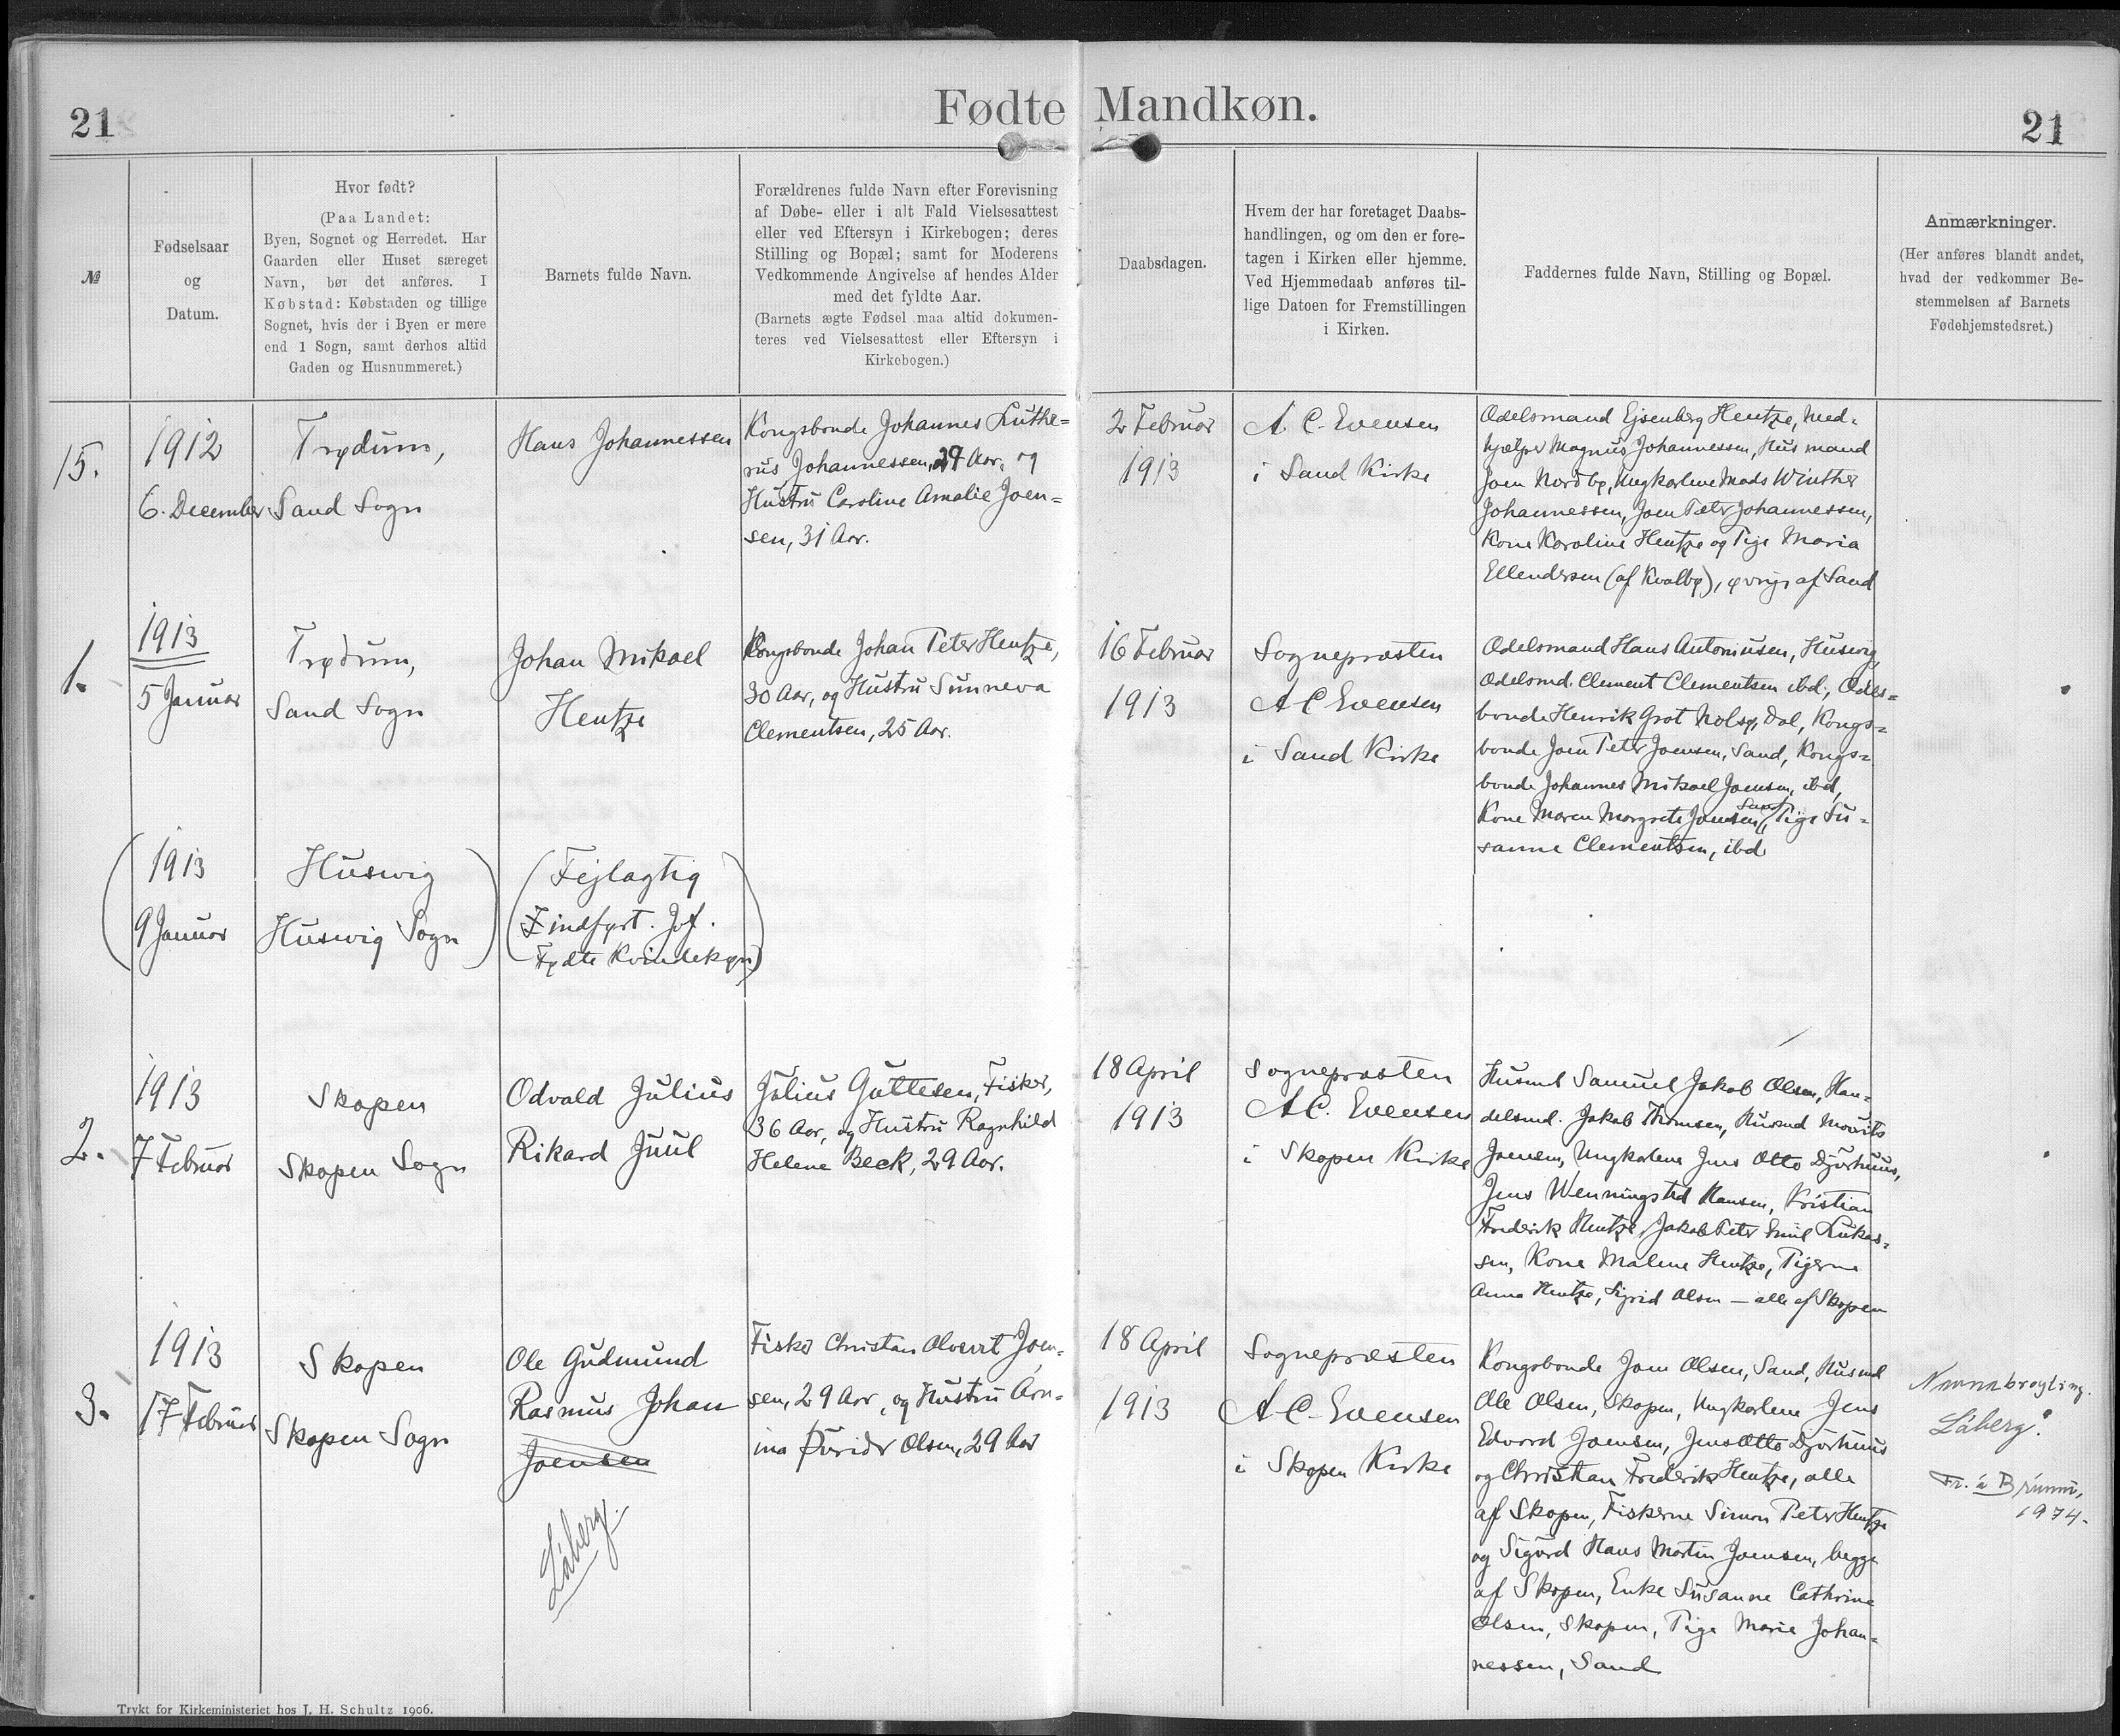 21
Fødte Mandkøn.
21
№
Fødselsaar
og
Datum.
Hvor født?
(Paa Landet:
Byen, Sognet og Herredet. Har
Gaarden eller Huset særeget
Navn, bør det anføres. I
Købstad: Købstaden og tillige
Sognet, hvis der i Byen er mere
end 1 Sogn, samt derhos altid
Gaden og Husnummeret.)
Barnets fulde Navn.
Forældrenes fulde Navn efter Forevisning
af Døbe- eller i alt Fald Vielsesattest
eller ved Eftersyn i Kirkebogen; deres
Stilling og Bopæl; samt for Moderens
Vedkommende Angivelse af hendes Alder
med det fyldte Aar.
(Barnets ægte Fødsel maa altid dokumen-
teres ved Vielsesattest eller Eftersyn i
Kirkebogen.)
Daabsdagen.
Hvem der har foretaget Daabs-
handlingen, og om den er fore-
tagen i Kirken eller hjemme.
Ved Hjemmedaab anføres til-
lige Datoen for Fremstillingen
i Kirken.
Faddernes fulde Navn, Stilling og Bopæl.
Anmærkninger.
(Her anføres blandt andet,
hvad der vedkommer Be-
stemmelsen af Barnets
Fødehjemstedsret.)
15.
1912
6. December
Trødum,
Sand Sogn
Hans Johannessen
Kongsbonde Johannes Luthe=
rus Johannessen, 29 Aar, og
Hustru Caroline Amalie Joen=
sen, 31 Aar.
2 Februar
1913
A. C. Evensen
i Sand Kirke
Odelsmand Ejsenberg Hentze, Med-
hjælper Magnus Johannessen, Husmand
Joen Nordbø, Ungkarlene Mads Winther
Johannessen, Joen Peter Johannessen,
Kone Karoline Hentze og Pige Maria
Ellendersen (af Kvalbø), øvrige af Sand
1.
1913
5 Januar
Trødum,
Sand Sogn
Johan Mikael
Hentze
Kongsbonde Johan Peter Hentze,
30 Aar, og Hustru Sunneva
Clementsen, 25 Aar.
16 Februar
1913
Sognepræsten
A C Evensen
i Sand Kirke
Odelsmand Hans Antoniusen, Huswig,
Odelsmd. Clement Clementsen ibd., Odels=
bonde Henrik Grot Nolsø, Dal, Kongs=
bonde Joen Peter Joensen, Sand, Kongs=
bonde Johannes Mikael Joensen, ibd,
Kone Maren Margrete Joensen, Sand, Pige Su-
sanne Clementsen, ibd
(1913
9 Januar
Huswig
Huswig Sogn)
(Fejlagtig
indført. Jvf.
Fødte Kvindekøn)
2.
1913
7 Februar
Skopen
Skopen Sogn
Odvald Julius
Rikard Juul
Julius Guttesen, Fisker,
36 Aar, og Hustru Ragnhild
Helene Beck, 29 Aar.
18 April
1913
Sognepræsten
A.C. Evensen
i Skopen Kirke
Husmd Samuel Jakob Olsen, Han-
delsmd. Jakob Thomsen, Husmd Mourits
Joensen, Ungkarlene Jens Otto Djurhuus,
Jens Wenningsted Hansen, Kristian
Frederik Hentze, Jakob Peter Emil Lukas-
sen, Kone Malene Hentze, Pigerne
Anna Hentze, Sigrid Olsen — alle af Skopen
3.
1913
17 Februar
Skopen
Skopen Sogn
Ole Gudmund
Rasmus Johan
Joensen
Láberg.
Fisker Christian Joen-
sen, 29 Aar, og Hustru An-
ina Þuriðr Olsen, 29 Aar
18 April
1913
Sognepræsten
A C. Evensen
i Skopen Kirke
Kongsbonde Joen Olsen, Sand, Husmd
Ole Olsen, Skopen, Ungkarlene Jens
Edvard Joensen, Jens Otto Djurhuus
og Christian Frederik Hentze, alle
af Skopen, Fiskerne Simon Peter Hentze
og Sigurd Hans Martin Joensen, begge
af Skopen, Enke Susanne Cathrine
Olsen, Skopen, Pige Marie Johan-
nessen, Sand
Navnabroyting.
Láberg.
Fr. á Brúnni,
1974.
Trykt for Kirkeministeriet hos J. H. Schultz 1906.